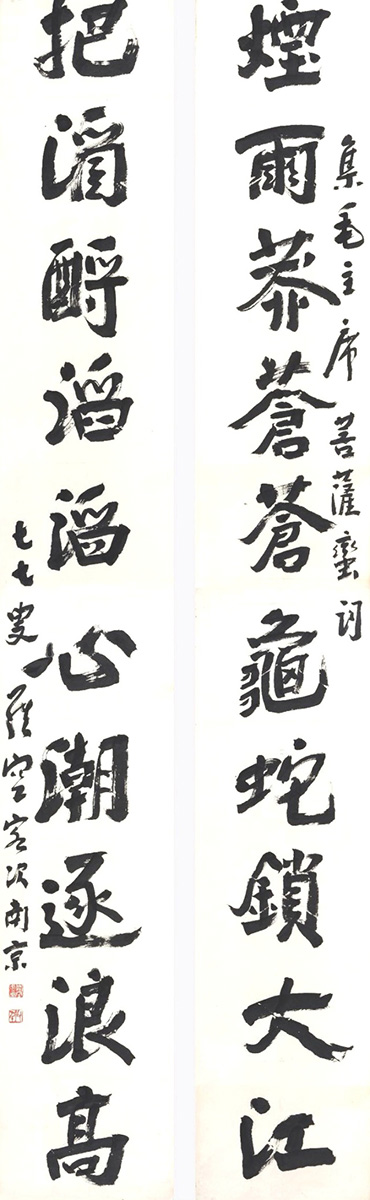 集毛主席菩薩蠻詞
煙雨莽蒼蒼龜蛇鎖大江
把酒酹滔滔心潮逐浪高
七七叟 空客次南京